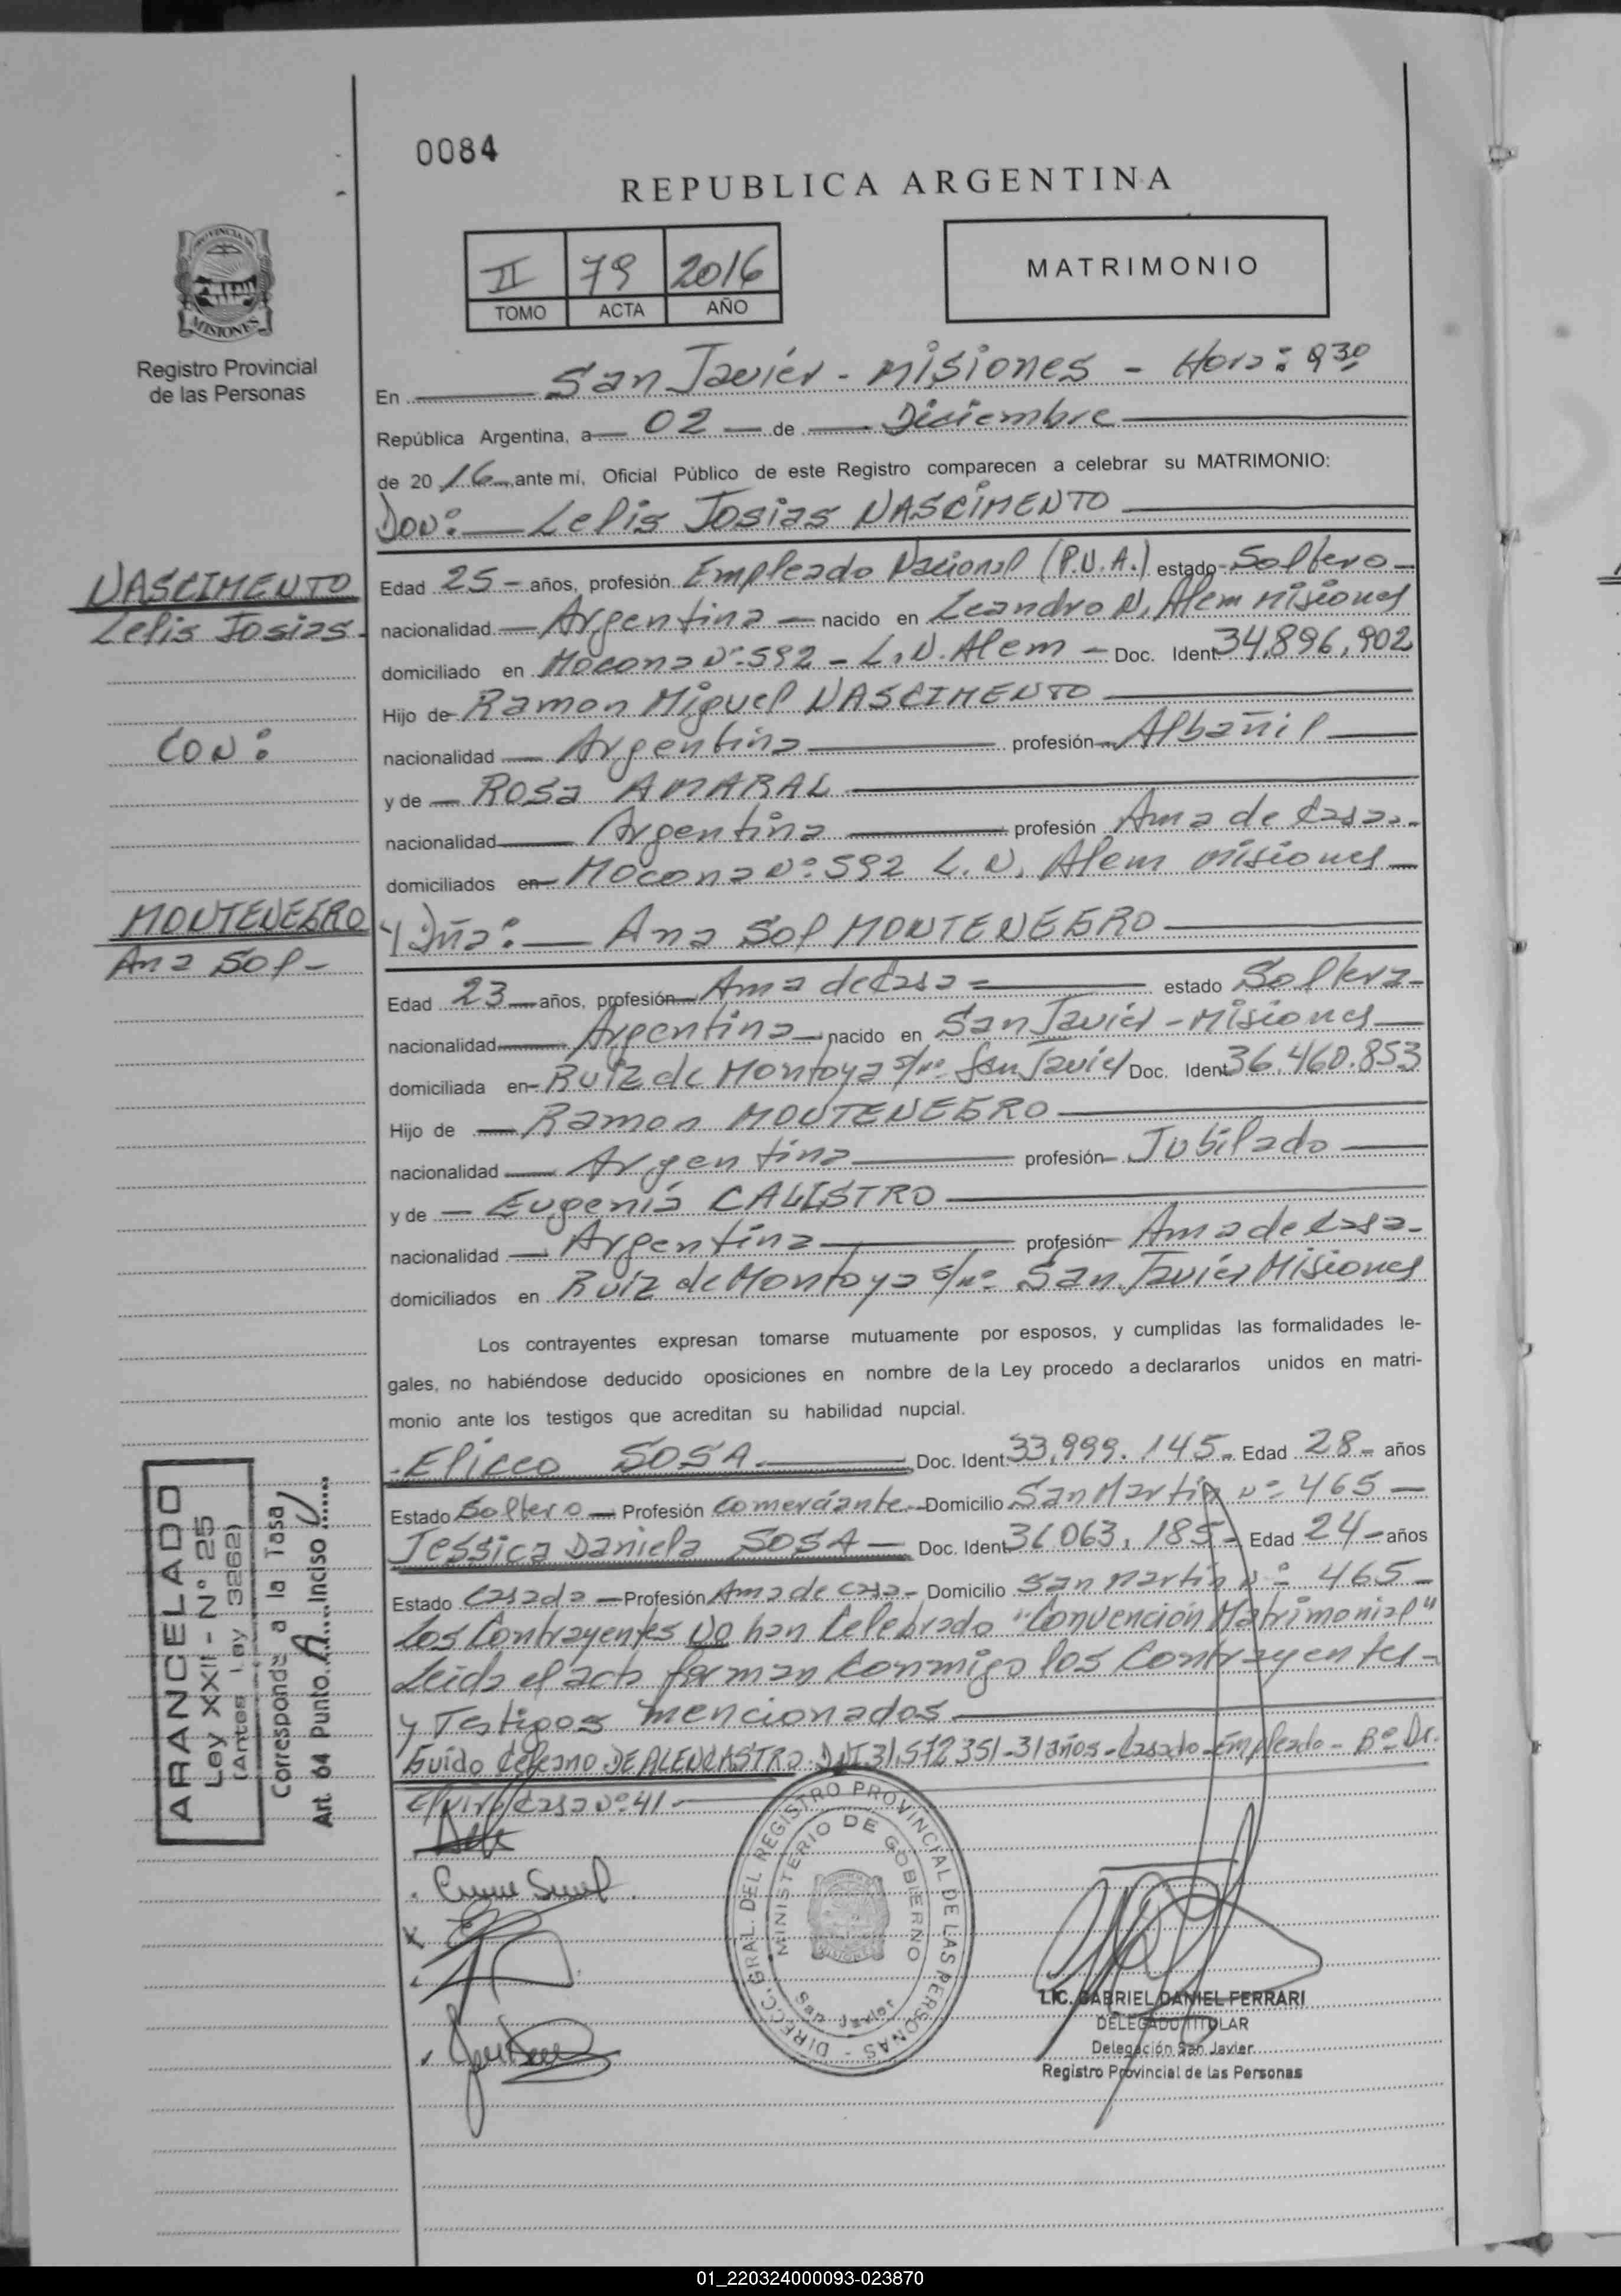 0084
REPUBLICA ARGENTINA
II 79 2016
TOMO ACTA AÑO
MATRIMONIO
PROVINCIA DE
MISIONES
Registro Provincial
de las Personas
En San Javier - Misiones - Hora: 9 30
República Argentina, a 02 de Diciembre
de 20 16 ante mi, Oficial Público de este Registro comparecen a celebrar su MATRIMONIO:
Don: Lelis Josias NASCIMENTO
NASCIMENTO
Lelis Josias
CON:
MONTENEGRO
Ana Sol -
Edad 25 - años, profesión Empleado Nacional (P.N.A.) estado Soltero -
nacionalidad Argentina - nacido en Leandro N. Alem Misiones
domiciliado en Mocona Nº 592 - L.N. Alem - Doc. Ident 34,896,902
Hijo de Ramon Miguel NASCIMENTO
nacionalidad Argentina profesión Albañil
y de Rosa AMARAL
nacionalidad Argentina profesión Ama de Casa -
domiciliados en Mocona Nº: 592 L.N. Alem Misiones
Y Dña: Ana Sol MONTENEGRO
Edad 23 años, profesión Ama de Casa estado Soltera -
nacionalidad Argentina nacido en San Javier - Misiones
domiciliada en Ruiz de Montoya s/nº San Javier Doc. Ident 36.460.853
Hijo de Ramon MONTENEGRO
nacionalidad Argentina profesión Jubilado
y de Eugenia CALISTRO
nacionalidad Argentina profesión Ama de Casa -
domiciliados en Ruiz de Montoya s/nº San Javier Misiones
Los contrayentes expresan tomarse mutuamente por esposos, y cumplidas las formalidades le-
gales, no habiéndose deducido oposiciones en nombre de la Ley procedo a declararlos unidos en matri-
monio ante los testigos que acreditan su habilidad nupcial.
Eliceo SOSA Doc. Ident 33,999.145 - Edad 28 - años
Estado Soltero - Profesión Comerciante - Domicilio San Martin Nº 465
Jessica Daniela SOSA - Doc. Ident 36 063,185 - Edad 24 - años
Estado Casada - Profesión Ama de casa - Domicilio San Martin Nº 465 -
Los Contrayentes NO han Celebrado "Convención Matrimonial"
Leida el acta firman Conmigo los Contrayentes -
y Testigos mencionados
Guido DE ALENCASTRO DNI 31,572 351 - 31 años - Casado - Empleado - Bº Dr.
Casa Nº: 41 -
ARANCELADO
Ley XXII - N° 25
(Antes Ley 3262)
Corresponde a la Tasa
Art. 64 Punto A Inciso
DIRECC. GRAL. DEL REGISTRO PROVINCIAL DE LAS PERSONAS
MINISTERIO DE GOBIERNO
MISIONES
San Javier
LIC. GABRIEL DANIEL FERRARI
DELEGADO TITULAR
Delegación San Javier
Registro Provincial de las Personas
01_220324000093-023870